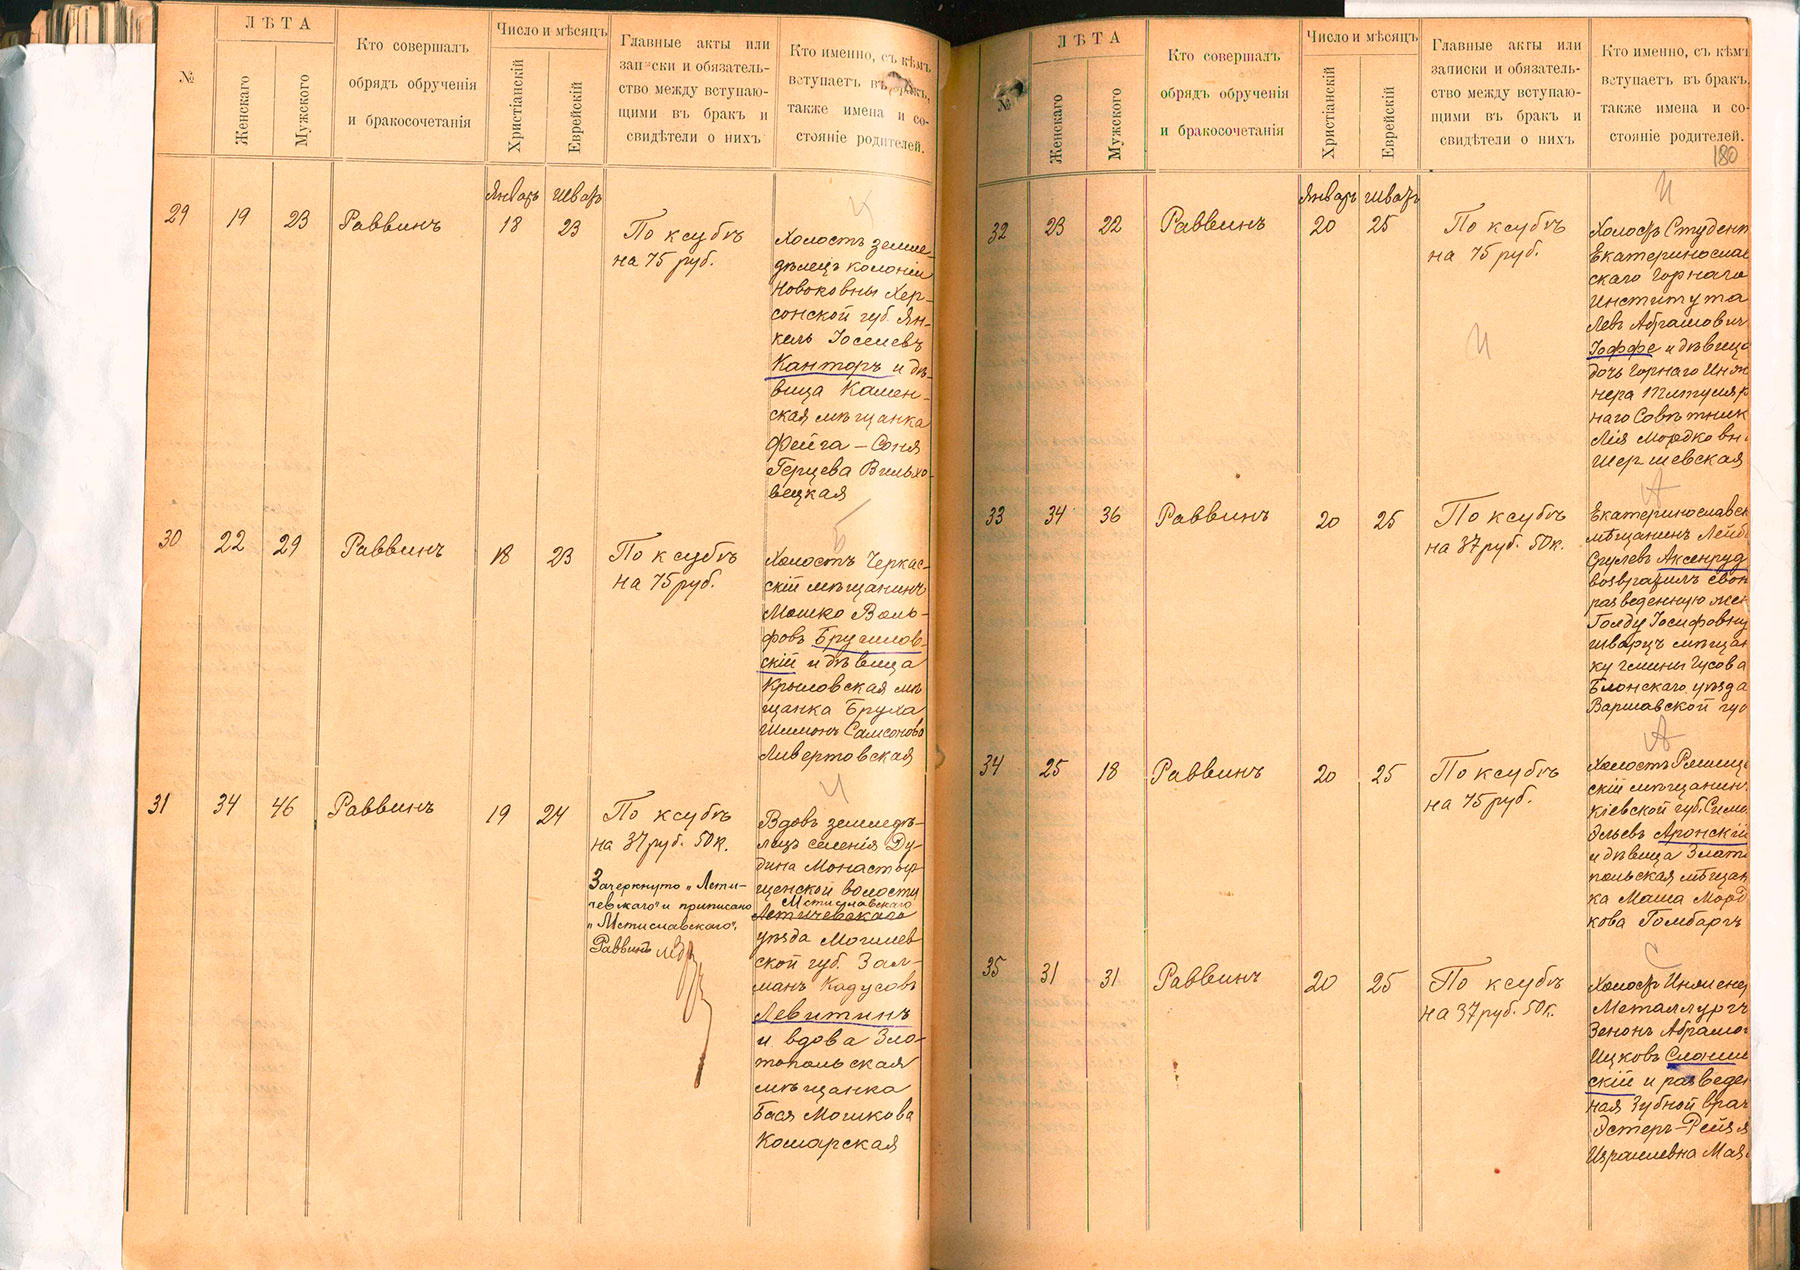 №
ЛѢТА
Женскаго
Мужского
Кто совершалъ
обрядъ обрученія
и бракосочетанія
Число и мѣсяцъ
Христіанскій
Еврейскій
Главные акты или
записки и обязатель-
ство между вступаю-
щими въ бракъ и
свидѣтели о нихъ
Кто именно, съ кѣмъ
вступаетъ въ бракъ,
также имена и со-
стояніе родителей.
Январь Шватъ
29 19 23 Раввинъ 18 23
По ксубѣ
на 75 руб.
Холостъ земле-
дѣлецъ колоніи
Новоковны Хер-
сонской губ. Ян-
кель Іоселевъ
Канторъ и дѣ-
вица Камен-
ская мѣщанка
Фейга – Соня
Герцева Вильхо-
вецкая
30 22 29 Раввинъ 18 23
По ксубѣ
на 75 руб.
Холостъ Черкас-
скій мѣщанинъ
Мошко Воль-
фовъ Брусилов-
скій и дѣвица
Крыловская мѣ
щанка Бруха
Шимонъ Самсонова
Ливертовская
31 34 46 Раввинъ 19 24
По ксубѣ
на 37 руб. 50 к.
Зачеркнуто „Лети-
чевскаго" и приписано
„Мстиславскаго".
Раввинъ
Вдовъ землед ѣ-
лецъ селенія Ду-
дина Монастыр-
щенской волости
Мстиславскаго
Летичевскаго
уѣзда Могилев
ской губ. Зал-
манъ Кадусовъ
Левитинъ
и вдова Зло-
топольская
мѣщанка
Бася Мошкова
Комарская
№
ЛѢТА
Женскаго
Мужского
Кто совершалъ
обрядъ обрученія
и бракосочетанія
Число и мѣсяцъ
Христіанскій
Еврейскій
Главные акты или
записки и обязатель-
ство между вступаю-
щими въ бракъ и
свидѣтели о нихъ
Кто именно, съ кѣмъ
вступаетъ въ бракъ,
также имена и со-
стояніе родителей.
180
Январь Шватъ
32 23 22 Раввинъ 20 25
По ксубѣ
на 75 руб.
Холостъ Студент
Екатеринослав
скаго Горнаго
Института
Левъ Абрамович
Іоффе и дѣвица
дочь Горнаго Инже
нера Титуляр
наго Совѣтник
Лія Мордковн
Шершевская
33 34 36 Раввинъ 20 25
По ксубѣ
на 37 руб. 50 к.
Екатеринославск
мѣщанинъ Лейб
Срулевъ Аксенруд
возвратилъ свою
разведенную жен
Голду Іосифовну
Шварцъ мѣщан
ку гмины Гусова
Блонскаго уѣзда
Варшавской губ
34 25 18 Раввинъ 20 25
По ксубѣ
на 75 руб.
Холостъ
скій мѣщанин
Кіевской губ. Симо
Эльевъ Аронскій
и дѣвица Злато
польская мѣщан
ка Маша Морд
кова Гомбаргъ
35 31 31 Раввинъ 20 25
По ксубѣ
на 37 руб. 50 к.
Холостъ Инженер
Металлургъ
Зенонъ Абрамо
Ицковъ Слоним
скій и разведен
ная Зубной врач
Эстеръ–Рейзя
Израилевна Мая